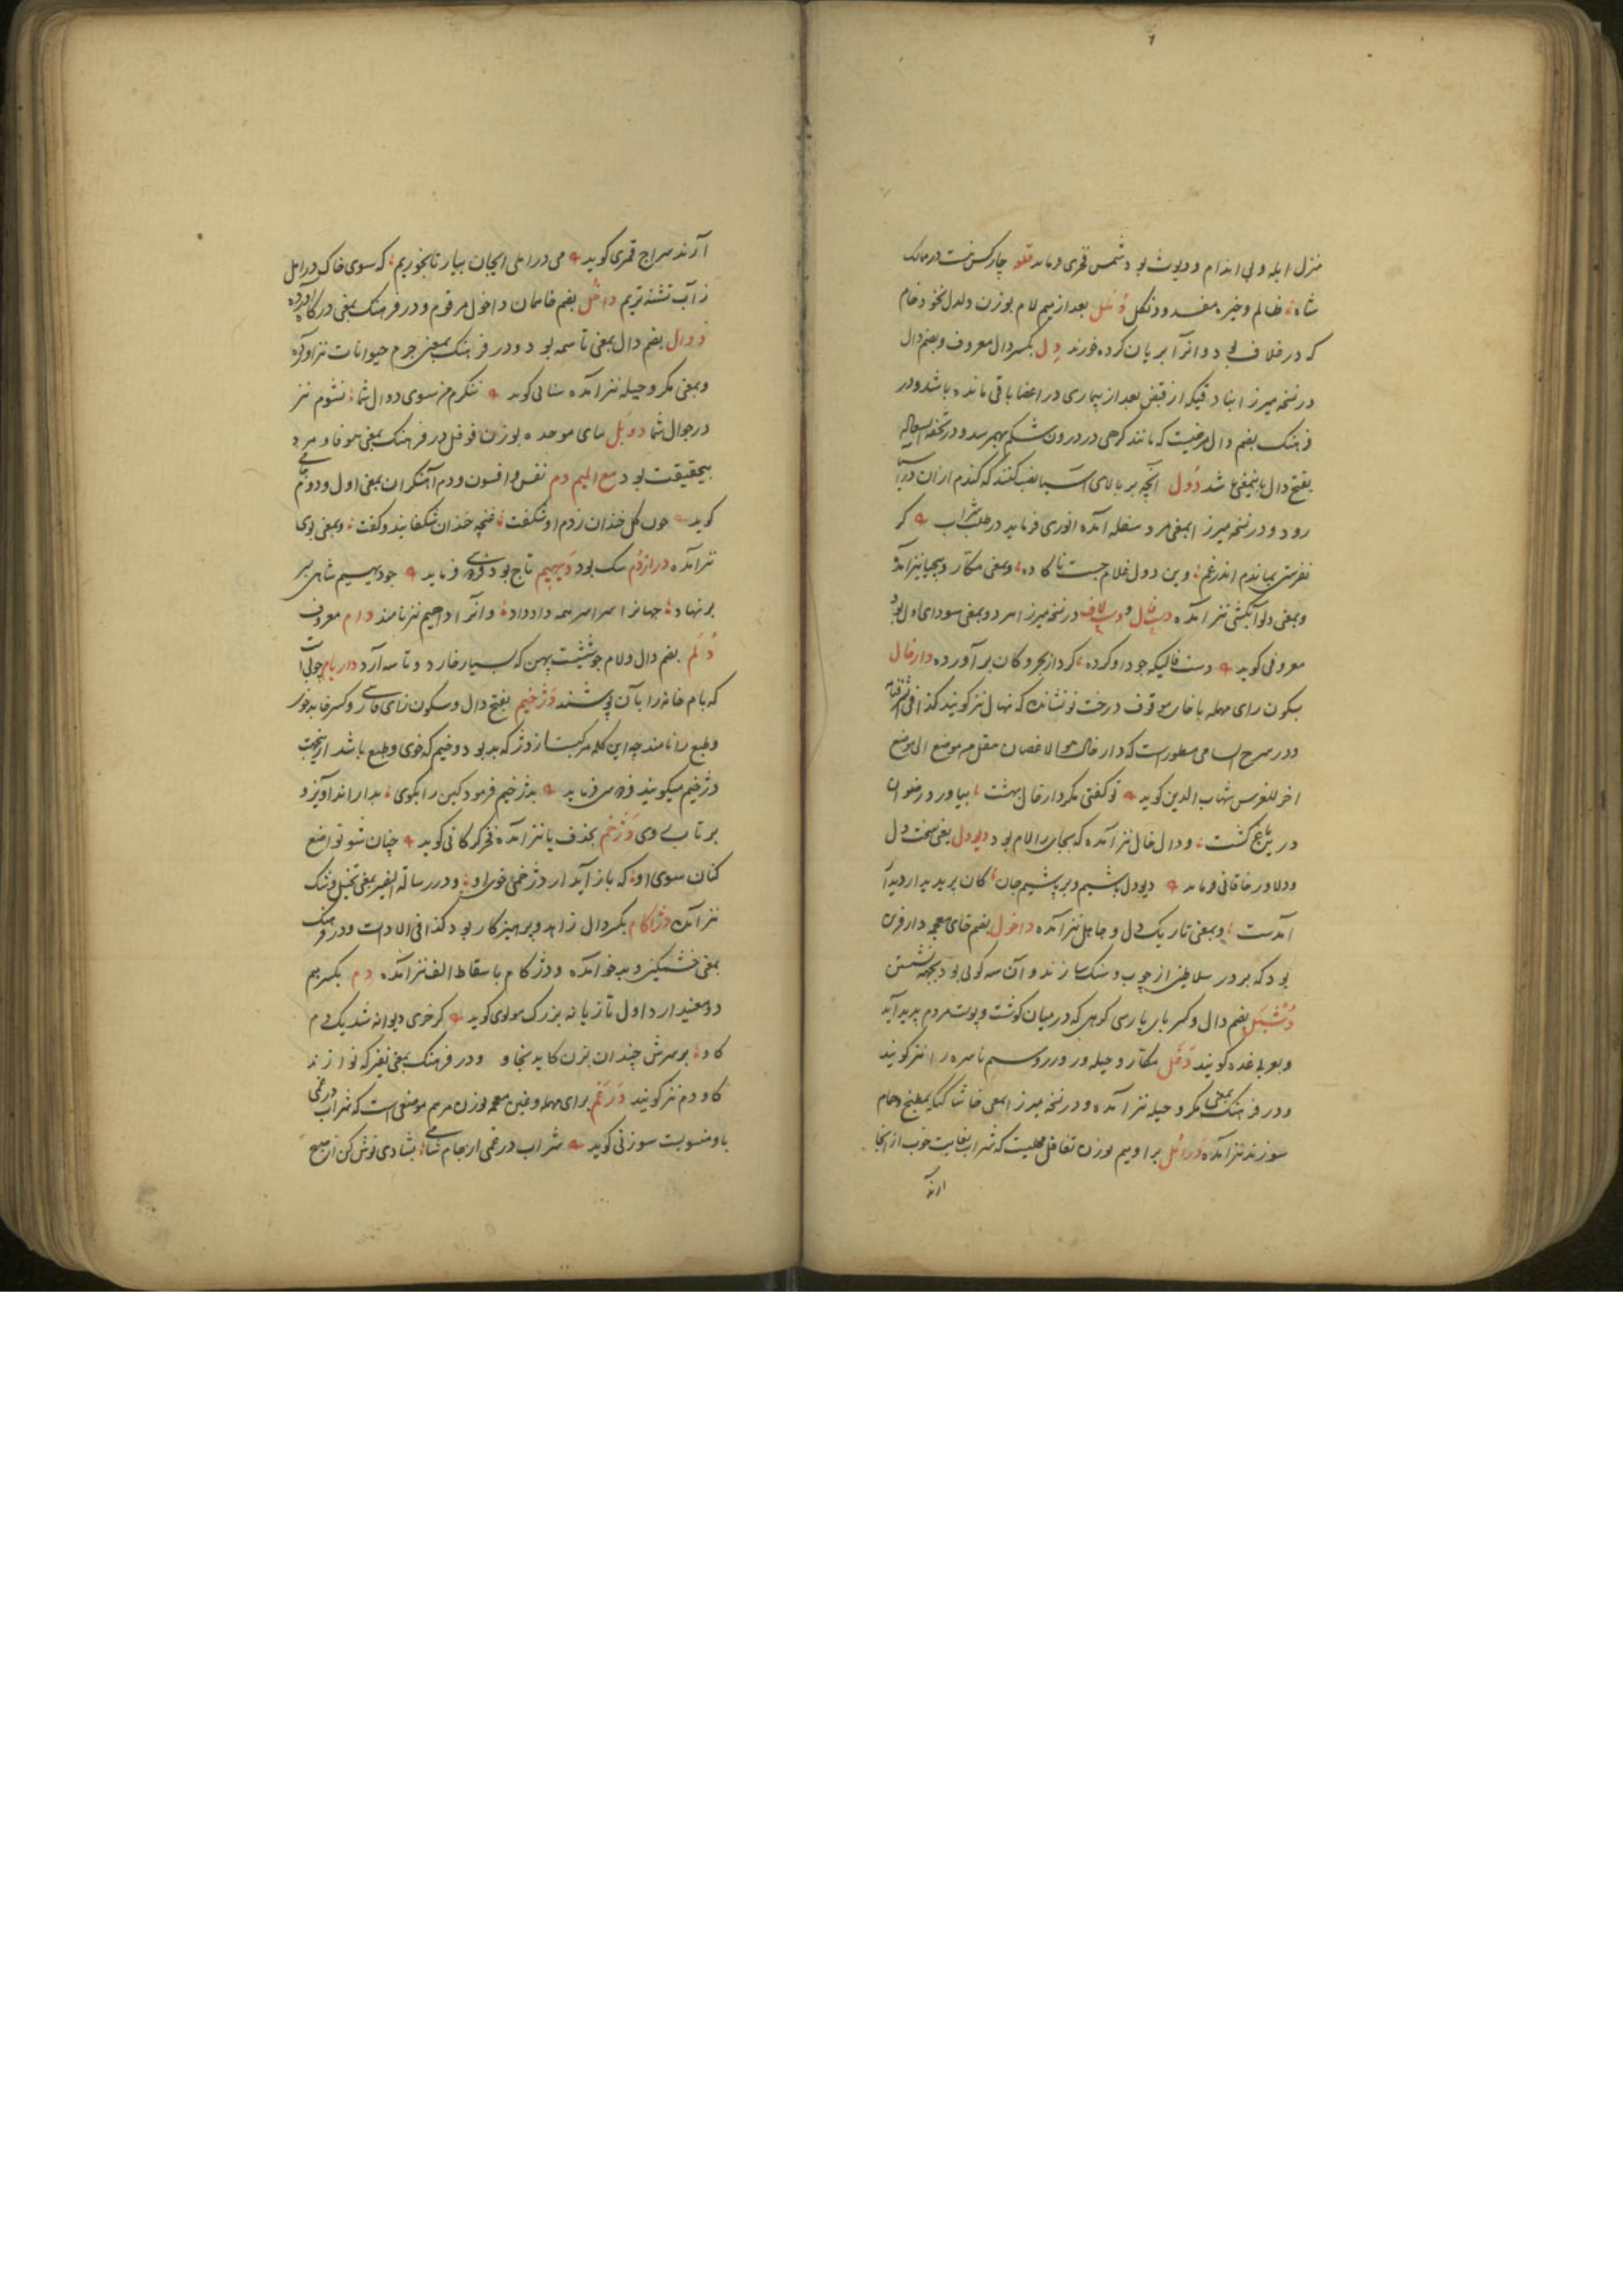 منزل ابله و بی اندام و دیوث بود شمس فخری فرماید چارکس نیست در ممالک
شاه ظالم و خیره مفسد و دنکل دمل بعد از میم لام بوزن دلدل نخود خام
که در غلاف بود و انرا بریان کرده خورند دل بکسر دال معروف و بضم دال
در نسخه میرزا بیماری در اعضا باقی مانده باشد و در
فرهنگ بضم دال مرضیست که مانند کرهی در درون شکم بهمرسد و در تحفه
بفتح دال باینمعنی باشد دول آنچه بر بالای آسیا نصب کنند که کندم ازان در آسیا
رود و در نسخه میرزا بمعنی مرد سفله آمده انوری فرماید در طلب شراب کر
نفرستی بماندم اندر غم وین دول غلام و بمعنی مکار و بیحیا نیز آمده
و بمعنی دلو آبکشی نیز آمده در نسخه میرزا و بمعنی سودای اول بود
معروفی کوید دست فالیکه جود او کرده کرد از بحر و کان بر آورده دارخال
بسکون رای مهمله با خا موقوف درخت نو نشانده که نهال نیز کویند کذا فی
و در شرح السامی مسطورست که دارخال هو الاغصان ینقل من موضع الی موضع
اخر للغرس شهاب الدین کوید تو کفتی مکر دارخال بهشت بیاورد رضوان
درین باغ کشت و دال خال نیز آمده که بجای را لام بود دیودل یعنی سخت دل
و دلاور خاقانی فرماید دیودل باشیم و بر پاشیم جان کان پری دیدار دیدار
آمدست و بمعنی تاریک دل و جاهل نیز آمده داخول بضم خای معجمه دارفرین
بود که بر در سلاطین از چوب و سنک سازند و آن سه کوی بود بجهة نشستن
دشبل بضم دال و کسر بای پارسی کرهی که در میان کوشت و پوست مردم پدید آید
و بعربی غده کویند دغل مکار و حیله ور و زر و سیم ناسره را نیز کویند
و در فرهنک بمعنی مکر و حیله نیز آمده و در نسخه میرزا بمعنی خاشاکی که بمطبخ و حمام
سوزند نیز آمده درامل برا و میم بوزن تغافل محلیست که شراب بغایت خوب از انجا
ارند
آرند سراج قمری کوید می دراملی ایجان بیار تا بخوریم که سوی خاک درامل
ز آب تشنه تریم داخل بضم خا همان داخول مرقوم و در فرهنک بمعنی درکاه آورده
دوال بضم دال بمعنی تاسمه بود و در فرهنک بمعنی چرم حیوانات نیز آورده
و بمعنی مکر و حیله نیز آمده سنائی کوید ننکرم من سوی دوال شما نشوم نیز
در جوال شما دوبل ببای موحده بوزن فوفل در فرهنک بمعنی بیوفا و مرد
بیحقیقت بود مع المیم دم نفس و افسون و دم آهنکران بمعنی اول و دوم
کوید چون کل خندان ز دم او شکفت غنچه خندان شکفانید و کفت و بمعنی بوی
نیز آمده درازدم سک بود دیهیم تاج بود فردوسی فرماید چو دیهیم شاهی بسر
بر نهاد جهانرا سراسر همه داد داد و انرا داهیم نیز نامند دام معروف
دلم بضم دال و لام پهن که بسیار خارد و تاسه آرد دار بام چوبی است
که بام خانه را بآن پوشند دژخیم بفتح دال و سکون زای فارسی و کسر خا بدخوی
و طبع را نامند چه این کلمه مرکبست از دژ که بد بود و خیم که خوی و طبع باشد ازینجهت
دژخیم میکویند فردوسی فرماید بدژخیم فرمود کین را بکوی بدار اندر آویز و
بر تاب روی دژخم بحذف یا نیز آمده فخر کرکانی کوید چنان شو تواضع
کنان سوی او که باز آید از دژخمی خوی او و در رسالة النصیر بمعنی بخیل و تنک
نیز آمده دژاکام بکسر دال زاهد و پرهیزکار بود کذا فی الادات و در فرهنک
بمعنی خشمکین و بدخو آمده و دژکام باسقاط الف نیز آمده دم بکسر میم
دو معنی دارد اول تازیانه بزرک مولوی کوید کر خری دیوانه شد یک دم
کاو بر سرش چندان بزن کاید بخاو و در فرهنک بمعنی نفیر که نوازند
کاو دم نیز کویند درغم برای مهمله و غین معجمه بوزن مرهم موضعی است که شراب درغمی
باو منسوبست سوزنی کوید شراب درغمی از جام شاهی بشادی نوش کن از صبح